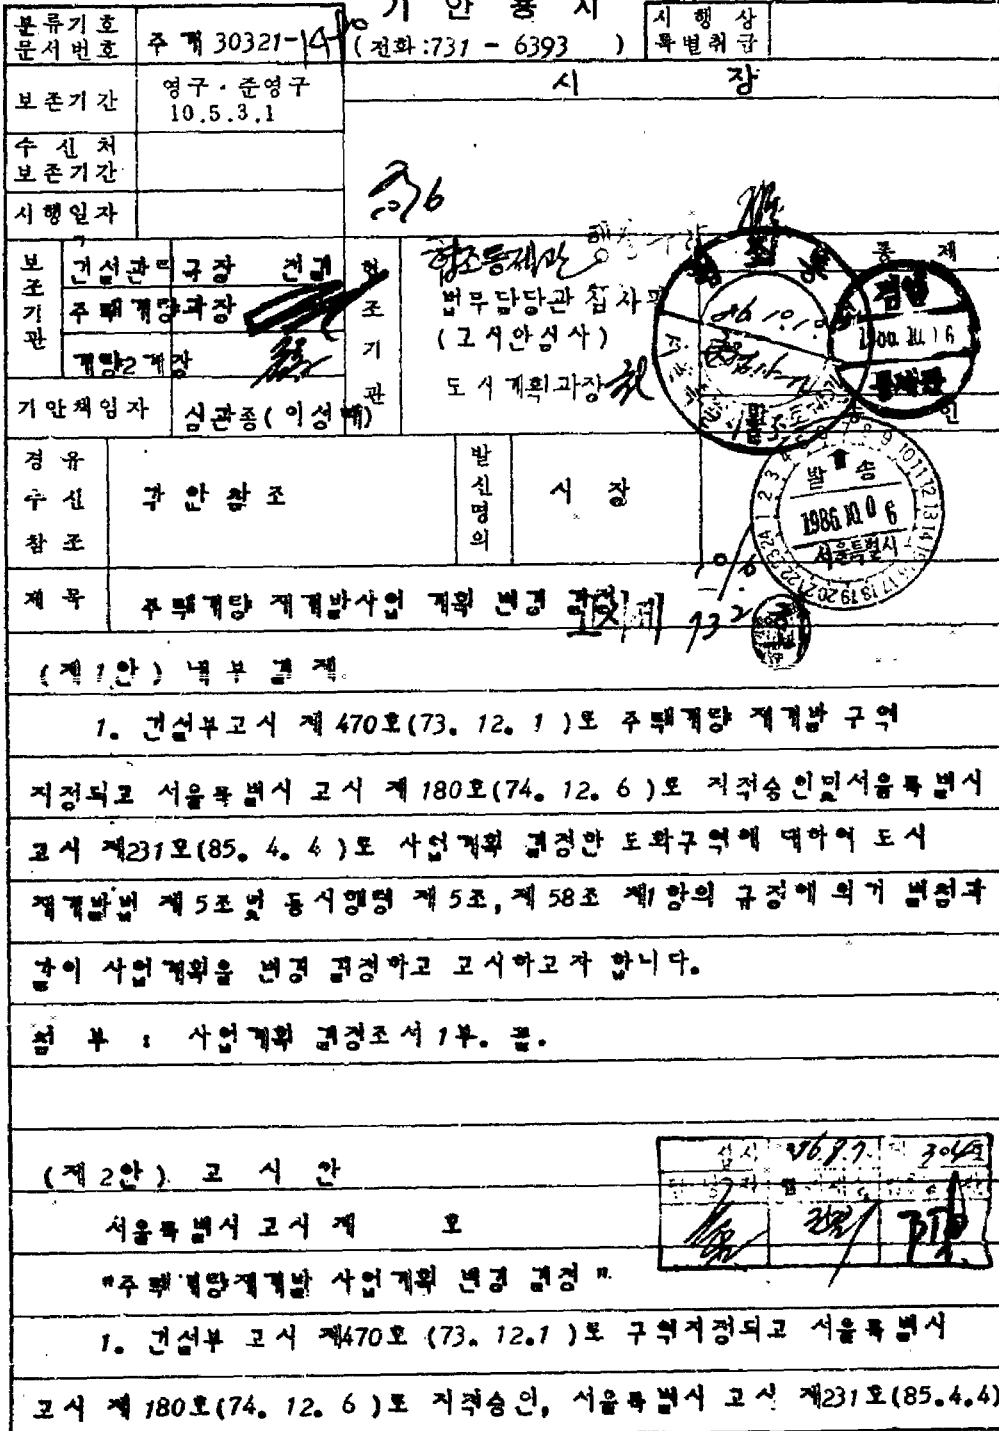 기 안 용 지
분류기호
문서번호
주 개 30321-
(전화:731 - 6393 )
시 행 상
특별취급
보존기간
영구 · 준영구
10.5.3.1
시 장
수 신 처
보존기간
시행일자
보조기관
건설관리국장 전결
주택개량과장
개량2계장
협조기관
법무담당관 심사필
(고시안심사)
도시계획과장
86.10.
1986.10.6
기안책임자
심관종(이성배)
경 유
수 신
참 조
각 안 참 조
발신명의
시 장
발 송
1986.10.06
서울특별시
제 목
주택개량 재개발사업 계획 변경 결정
(제1안) 내 부 결 재
1. 건설부고시 제470호(73. 12. 1 )로 주택개량 재개발 구역
지정되고 서울특별시 고시 제180호(74. 12. 6 )로 지적승인및서울특별시
고시 제231호(85. 4. 4 )로 사업계획 결정한 도화구역에 대하여 도시
재개발법 제5조및 동시행령 제5조,제58조 제1항의 규정에 의거 별첨과
같이 사업계획을 변경 결정하고 고시하고자 합니다.
첨 부 : 사업계획 결정조서 1부. 끝.
(제2안) 고 시 안
심사 86.9.7. 제 304호
서울특별시 고시 제 호
"주택개량재개발 사업계획 변경 결정".
1. 건설부 고시 제470호 (73. 12.1 )로 구역지정되고 서울특별시
고시 제180호(74. 12. 6 )로 지적승인, 서울특별시 고시 제231호(85.4.4)